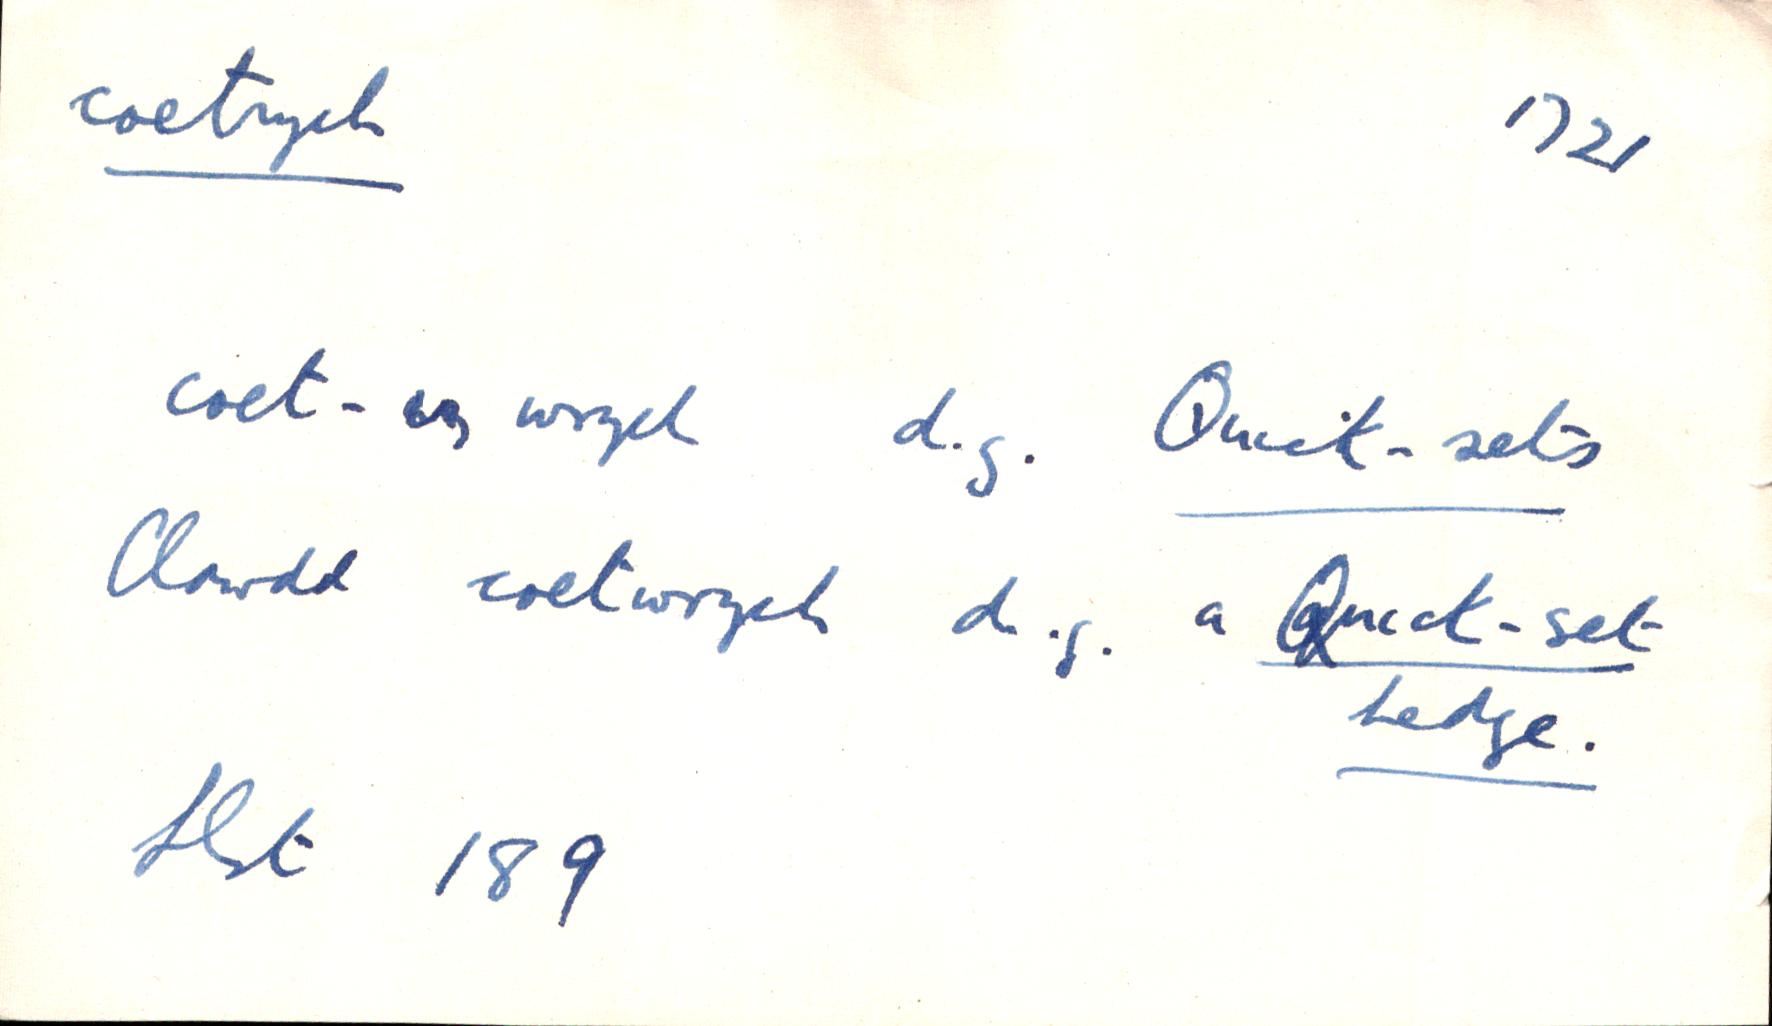 coetrych 1721
coet-wrych d.g. Quick-sets
Clawdd coetwrych d.g. a Quick-set
hedge.
Llst 189